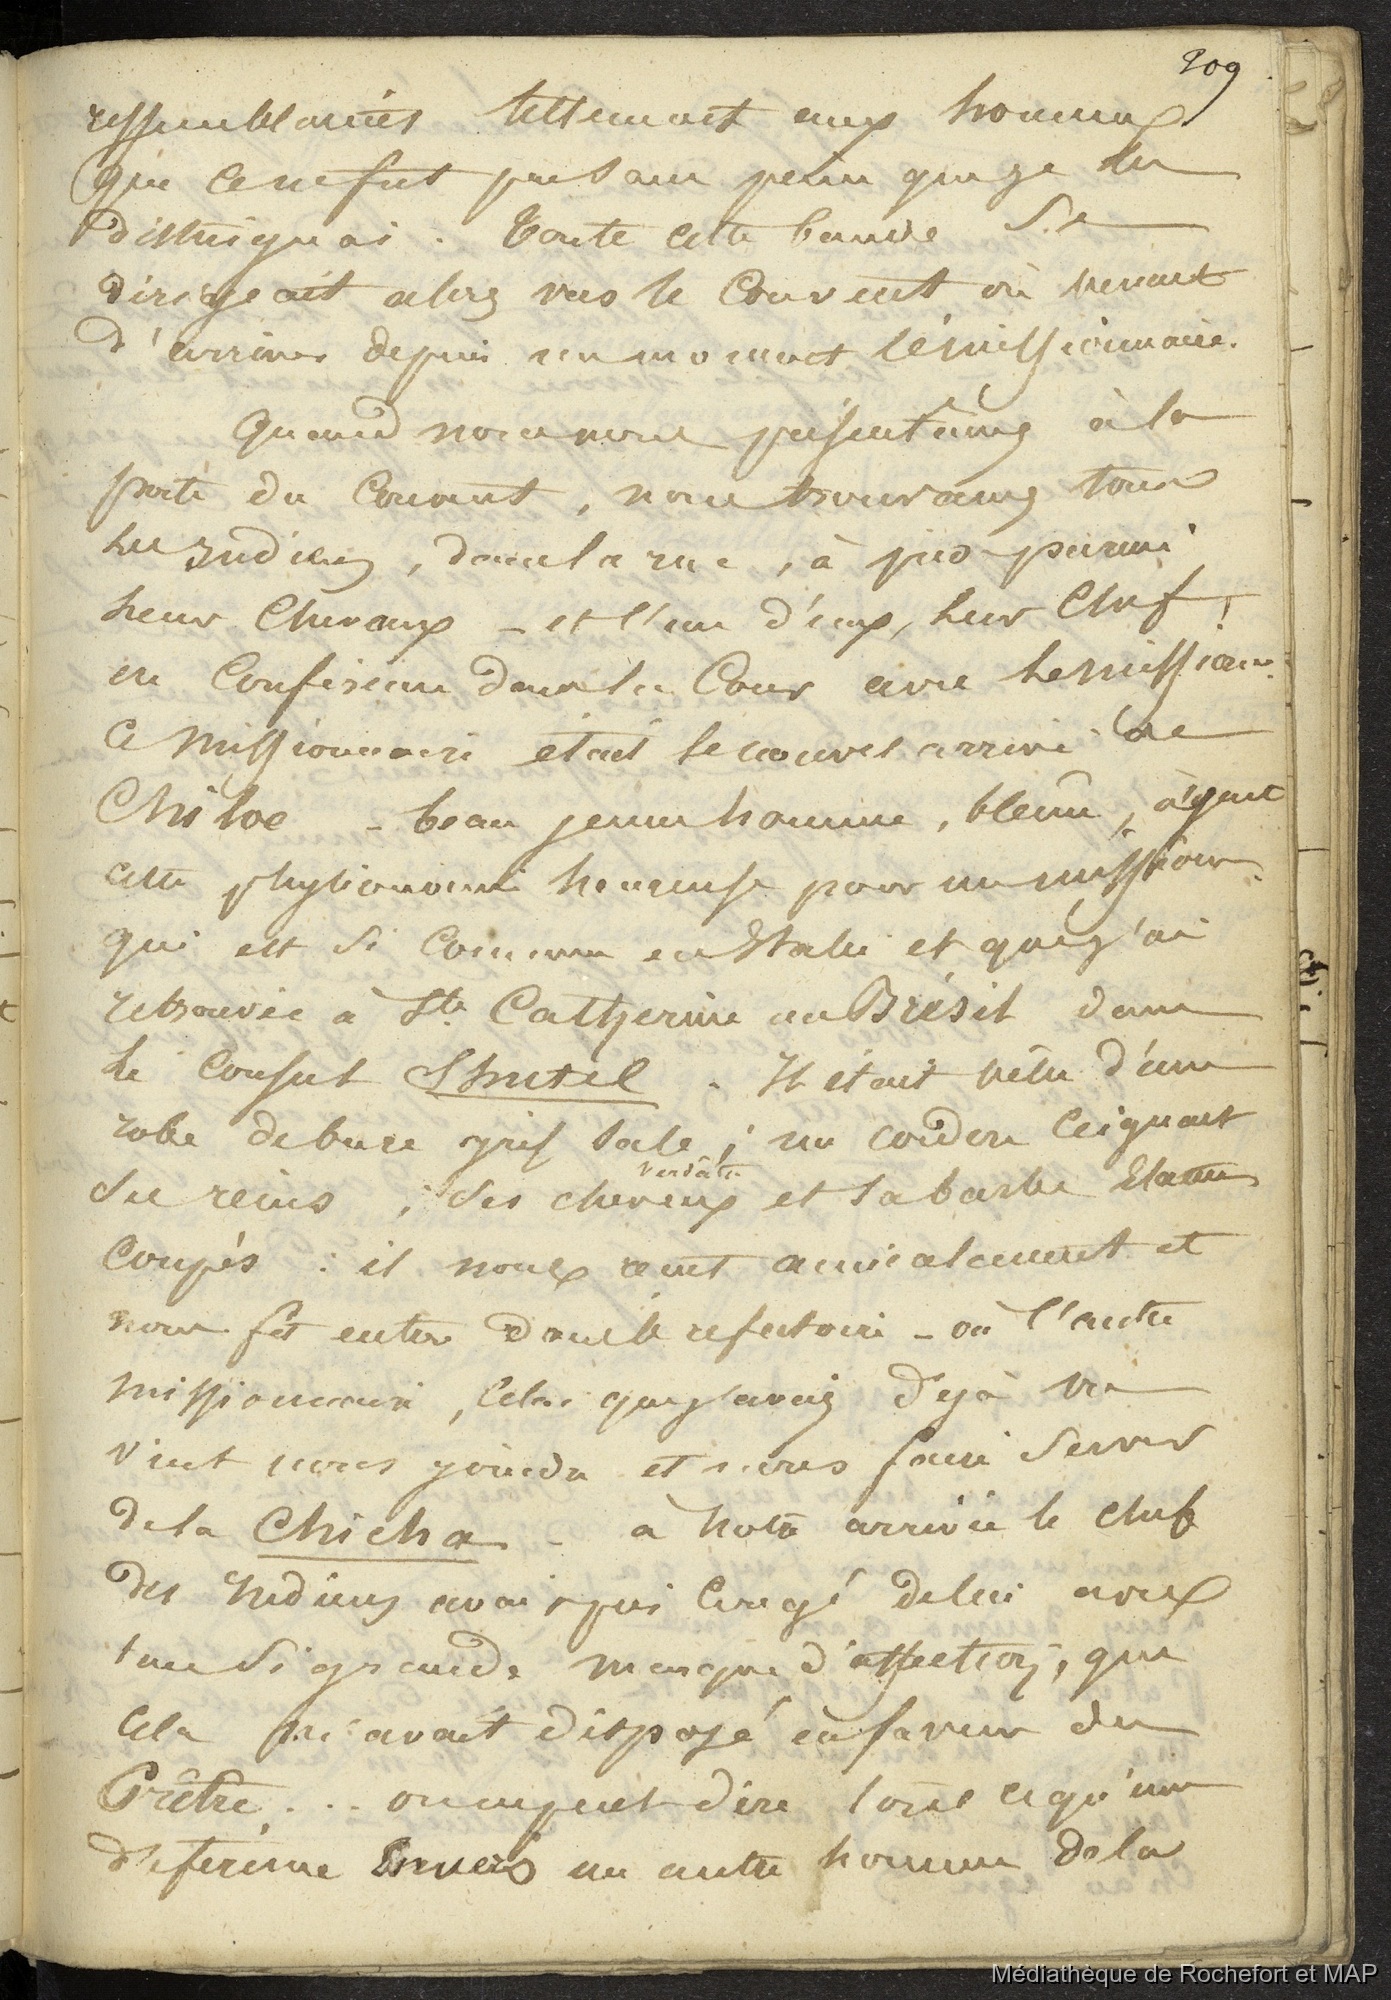 209
ressemblantes tellement aux hommes
que ce ne fut pas sans peine que je les
distinguai. Toute cette bande se
dirigeait alors vers le Couvent où venait
d'arriver depuis un moment le missionnaire.
Quand nous nous présentames à la
porte du Couvent, nous trouvames tous
les Indiens, dans la rue, à pied parmi
leurs Chevaux - et l'un d'eux, leur Chef,
en Conférence dans la Cour avec le mission.
Ce Missionnaire était le nouvel arrivé de
Chiloe - beau jeune homme, blême, ayant
cette physionomie heureuse pour un mission.
qui est si Commune en Italie et que j'ai
retrouvée à Ste Catherine au Brésil dans
le Consul Shutel. Il était vêtu d'une
robe de bure gris sale; un cordon Ceignait
ses reins, ses cheveux et sa barbe
verdâtre
Coupés : il nous reçut amicalement et
nous fit entrer dans le refectoire - où l'autre
missionnaire, Celui que j'avais dejà vu
vint nous joindre et nous faire Servir
de la Chicha. - à notre arrivée le chef
des Indiens avait pris Congé de lui avec
une si grande marque d'affection, que
Cela m'avait disposé en faveur du
Prêtre... on ne peut dire tout ce qu'une
déférence Envers un autre homme de la
Médiathèque de Rochefort et MAP